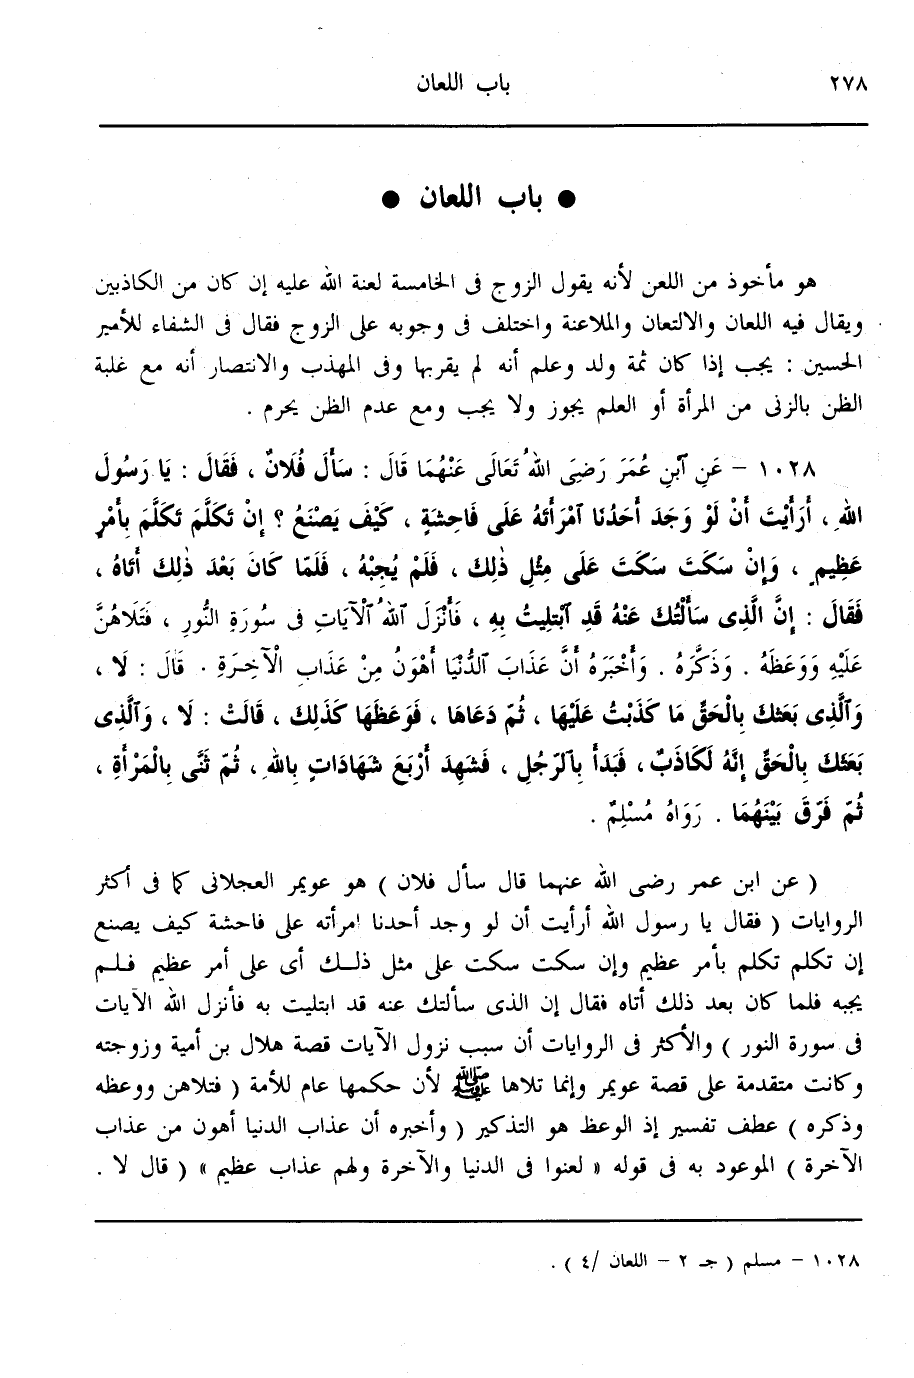 ٢٧٨ باب اللعان
● باب اللعان ●
هو مأخوذ من اللعن لأنه يقول الزوج فى الخامسة لعنة الله عليه إن كان من الكاذبين
ويقال فيه اللعان والالتعان والملاعنة واختلف فى وجوبه على الزوج فقال فى الشفاء للأمير
الحسين : يجب إذا كان ثمة ولد وعلم أنه لم يقربها وفى المهذب والانتصار أنه مع غلبة
الظن بالزنى من المرأة أو العلم يجوز ولا يجب ومع عدم الظن يحرم .
١٠٢٨ – عَنِ ٱبْنِ عُمَرَ رَضِيَ اللهُ تَعَالَى عَنْهُمَا قَالَ : سَأَلَ فُلَانٌ ، فَقَالَ : يَا رَسُولَ
اللهِ ، أَرَأَيْتَ أَنْ لَوْ وَجَدَ أَحَدُنَا آمْرَأَتَهُ عَلَى فَاحِشَةٍ ، كَيْفَ يَصْنَعُ ؟ إِنْ تَكَلَّمَ تَكَلَّمَ بِأَمْرٍ
عَظِيمٍ ، وَإِنْ سَكَتَ سَكَتَ عَلَى مِثْلِ ذٰلِكَ ، فَلَمْ يُجِبْهُ ، فَلَمَّا كَانَ بَعْدَ ذٰلِكَ أَتَاهُ ،
فَقَالَ : إِنَّ الَّذِى سَأَلْتُكَ عَنْهُ قَدِ ٱبْتَلِيتُ بِهِ ، فَأَنْزَلَ ٱللهُ ٱلْآيَاتِ فِى سُورَةِ النُّورِ ، فَتَلَاهُنَّ
عَلَيْهِ وَوَعَظَهُ . وَذَكَّرَهُ . وَأَخْبَرَهُ أَنَّ عَذَابَ ٱلدُّنْيَا أَهْوَنُ مِنْ عَذَابِ الْآخِرَةِ . قَالَ : لَا ،
وَٱلَّذِى بَعَثَكَ بِالْحَقِّ مَا كَذَبْتُ عَلَيْهَا ، ثُمَّ دَعَاهَا ، فَوَعَظَهَا كَذَلِكَ ، قَالَتْ : لَا ، وَٱلَّذِى
بَعَثَكَ بِالْحَقِّ إِنَّهُ لَكَاذَبٌ ، فَبَدَأَ بِٱلرَّجُلِ ، فَشَهِدَ أَرْبَعَ شَهَادَاتٍ بِاللهِ ، ثُمَّ ثَنَّى بِالْمَرْأَةِ ،
ثُمَّ فَرَّقَ بَيْنَهُمَا . رَوَاهُ مُسْلِمٌ .
( عن ابن عمر رضى الله عنهما قال سأل فلان ) هو عويمر العجلانى كما فى أكثر
الروايات ( فقال يا رسول الله أرأيت أن لو وجد أحدنا امرأته على فاحشة كيف يصنع
إن تكلم تكلم بأمر عظيم وإن سكت سكت على مثل ذلــك أى على أمر عظيم فلـم
يجبه فلما كان بعد ذلك أتاه فقال إن الذى سألتك عنه قد ابتليت به فأنزل الله الآيات
فى سورة النور ) والأكثر فى الروايات أن سبب نزول الآيات قصة هلال بن أمية وزوجته
وكانت متقدمة على قصة عويمر وإنما تلاها ﷺ لأن حكمها عام للأمة ( فتلاهن ووعظه
وذكره ) عطف تفسير إذ الوعظ هو التذكير ( وأخبره أن عذاب الدنيا أهون من عذاب
الآخرة ) الموعود به فى قوله « لعنوا فى الدنيا والآخرة ولهم عذاب عظيم » ( قال لا .
١٠٢٨ – مسلم ( جـ ٢ – اللعان /٤ ) .